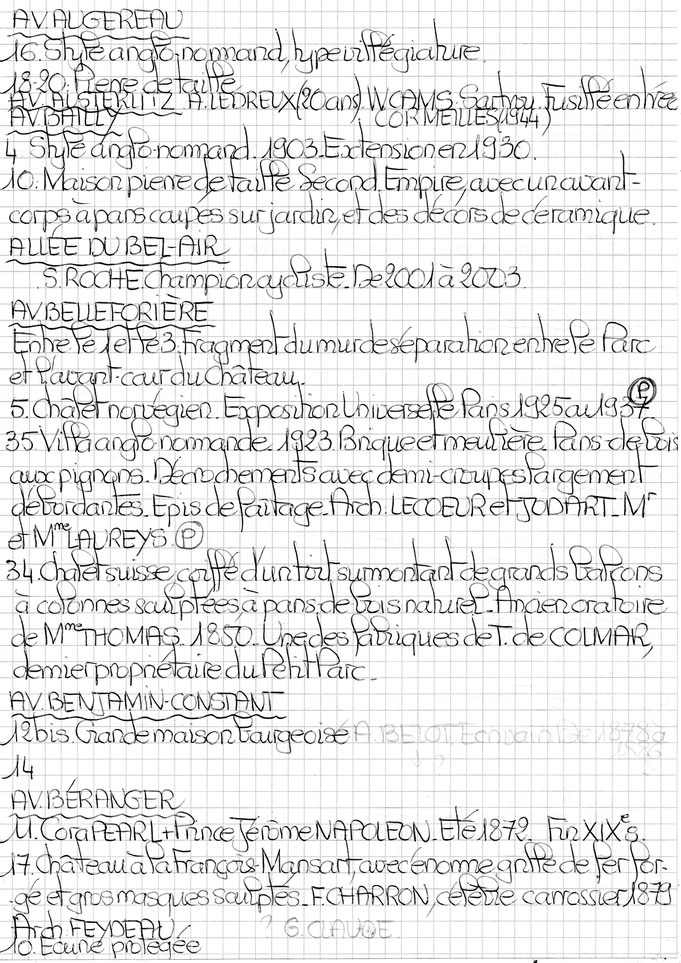 AV. AUGEREAU
16. Style anglo-normand, type villégiature.
18-20. Pierre de taille
AV. AUSTERLITZ A. LEDREUX (20 ans). W CAMS. Sartrou. Fusillé entrée
AV. BAILLY CORMEILLES (1944)
4 Style anglo-normand. 1903. Extension en 1930.
10. Maison pierre de taille Second. Empire, avec un avant-
corps à pans coupés sur jardin, et des décors de céramique.
ALLÉE DU BEL-AIR
S. ROCHE. Champion cycliste. De 2001 à 2003.
AV. BELLEFORIÈRE
Entre le 1 et le 3. Fragment du mur de séparation entre le Parc
et l'avant-cour du Château.
5. Chalet norvégien. Exposition Universelle Paris 1925 ou 1937 (P)
35 Villa anglo-normande. 1923. Brique et meulière. Pans-de-bois
aux pignons. Décrochements avec demi-croupes largement
débordantes. Epis de faîtage. Arch. LECOEUR et JODART. Mr
et Mme LAUREYS (P)
34. Chalet suisse, coiffé d'un toit surmontant de grands balcons
à colonnes sculptées, à pans de bois naturel. Ancien oratoire
de Mme THOMAS. 1850. Une des fabriques de T. de COLMAR,
dernier propriétaire du Petit Parc.
AV. BENJAMIN-CONSTANT
12 bis. Grande maison bourgeoise A. BELOT. Ecrivain De 1878 à
14
AV. BÉRANGER
11. Cora PEARL + Prince Jérôme NAPOLEON. Eté 1872. Fin XIXe s.
17. Château à la François-Mansart, avec énorme griffe de fer for-
-gé et gros masques sculptés. F. CHARRON, célèbre carrossier 1879
Arch. FEYDEAU ? G. CLAUDE.
10. Ecurie protégée